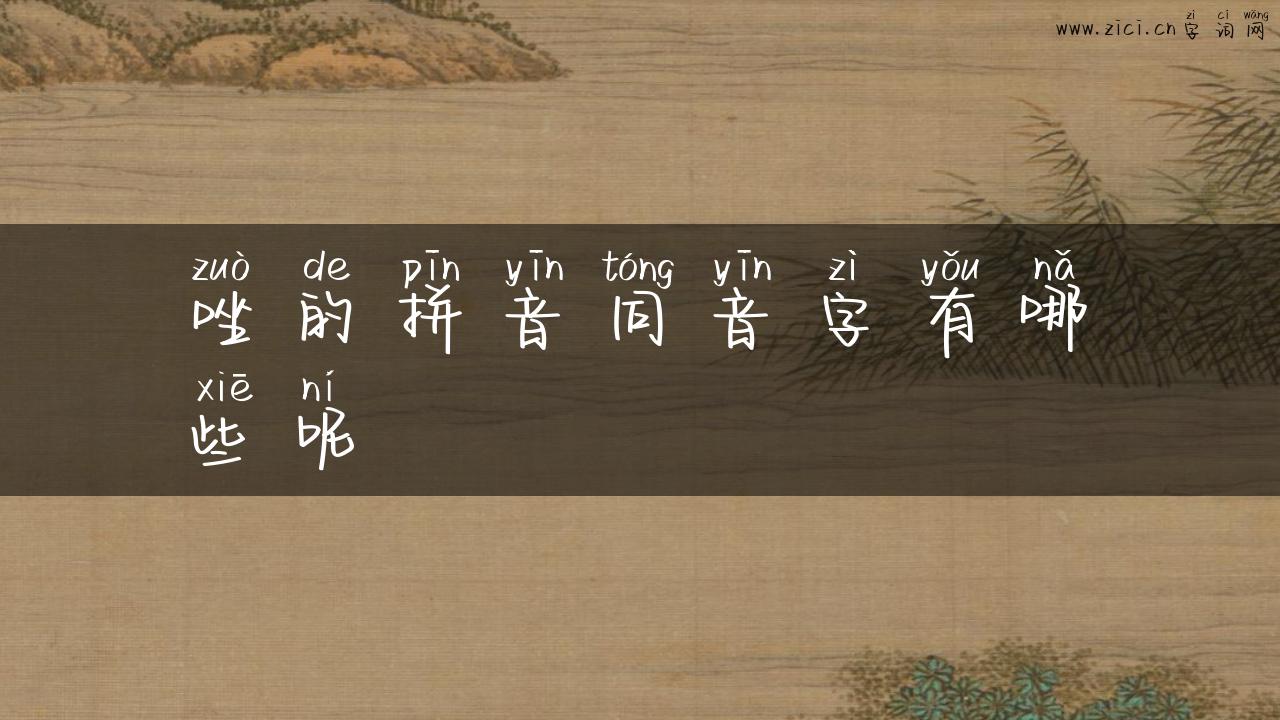 zì cí wǎng
www.zici.cn 字词网
zuò de pīn yīn tóng yīn zì yǒu nǎ
唑的拼音同音字有哪
xiē ní
些呢